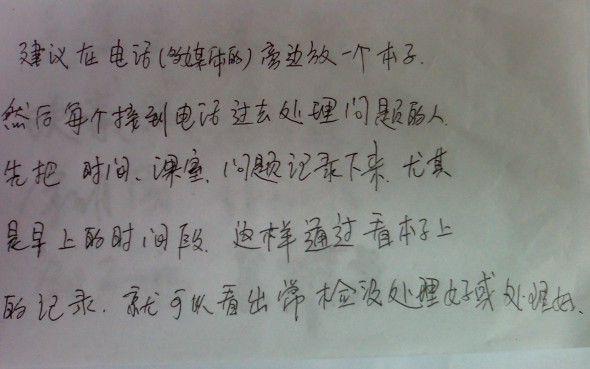 建议在电话(多媒体的)旁边放一个本子.
然后每个接到电话过去处理问题的人
先把 时间、课室、问题记录下来. 尤其
是早上的时间段. 这样通过看本子上
的记录. 就可以看出常检没处理好或处理好.